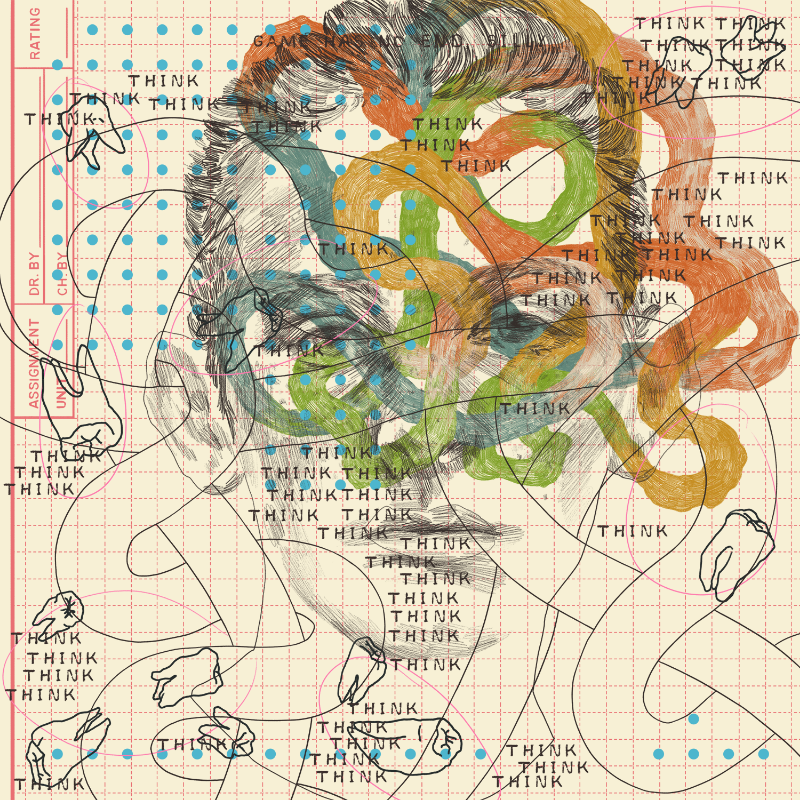 RATING
DR. BY
CH. BY
ASSIGNMENT
UNIT
THINK THINK
GAME HAS NO END, BILLY
THINK THINK
THINK THINK
THINK THINK THINK
THINK THINK THINK THINK
THINK THINK THINK
THINK
THINK
THINK
THINK
THINK THINK
THINK THINK
THINK
THINK THINK
THINK THINK
THINK THINK
THINK
THINK
THINK THINK
THINK THINK THINK
THINK THINK THINK
THINK THINK
THINK THINK
THINK
THINK
THINK
THINK
THINK
THINK THINK
THINK THINK
THINK
THINK
THINK
THINK
THINK THINK THINK
THINK THINK
THINK THINK THINK